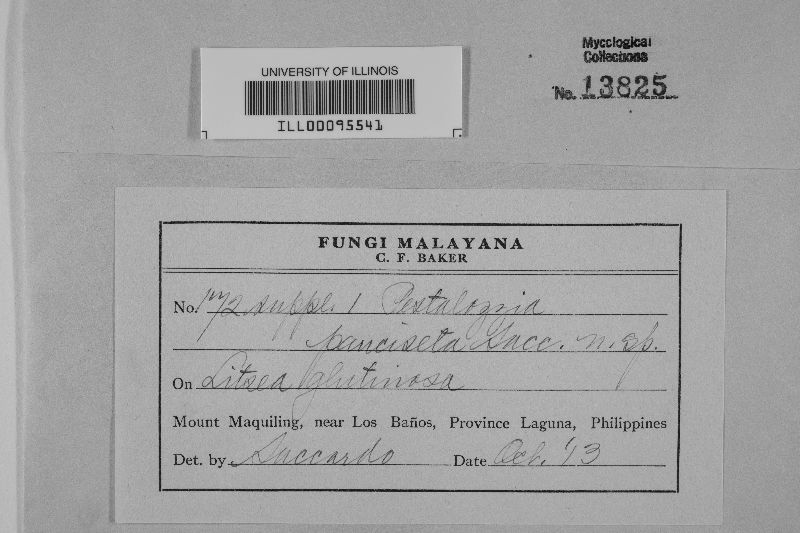 UNIVERSITY OF ILLINOIS
ILL00095541
Mycological
Collections
No. 13825
FUNGI MALAYANA
C. F. BAKER
No. 172 suppl. 1 Pestalozzia
pauciseta Sacc. n. sp.
On Litsea glutinosa
Mount Maquiling, near Los Baños, Province Laguna, Philippines
Det. by Saccardo Date Oct. '13